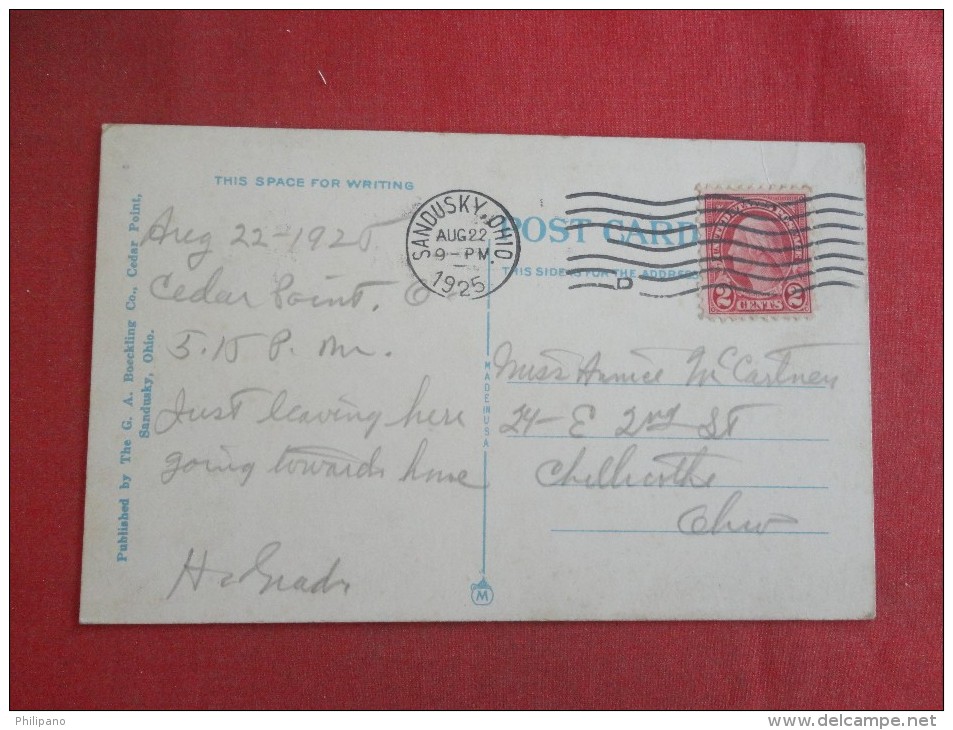 THIS SPACE FOR WRITING
Aug 22-1925
Cedar Point, O
5.15 P.m.
Just leaving here
going towards home
Published by The G. A. Boeckling Co., Cedar Point,
Sandusky, Ohio.
SANDUSKY, OHIO.
AUG 22
9-PM
1925
POST CARD
THIS SIDE IS FOR THE ADDRESS
D
2 CENTS 2
MADE IN USA
Miss McCartney
24-E 2nd St
Chillicothe
Ohio
M
Philipano
www.delcampe.net